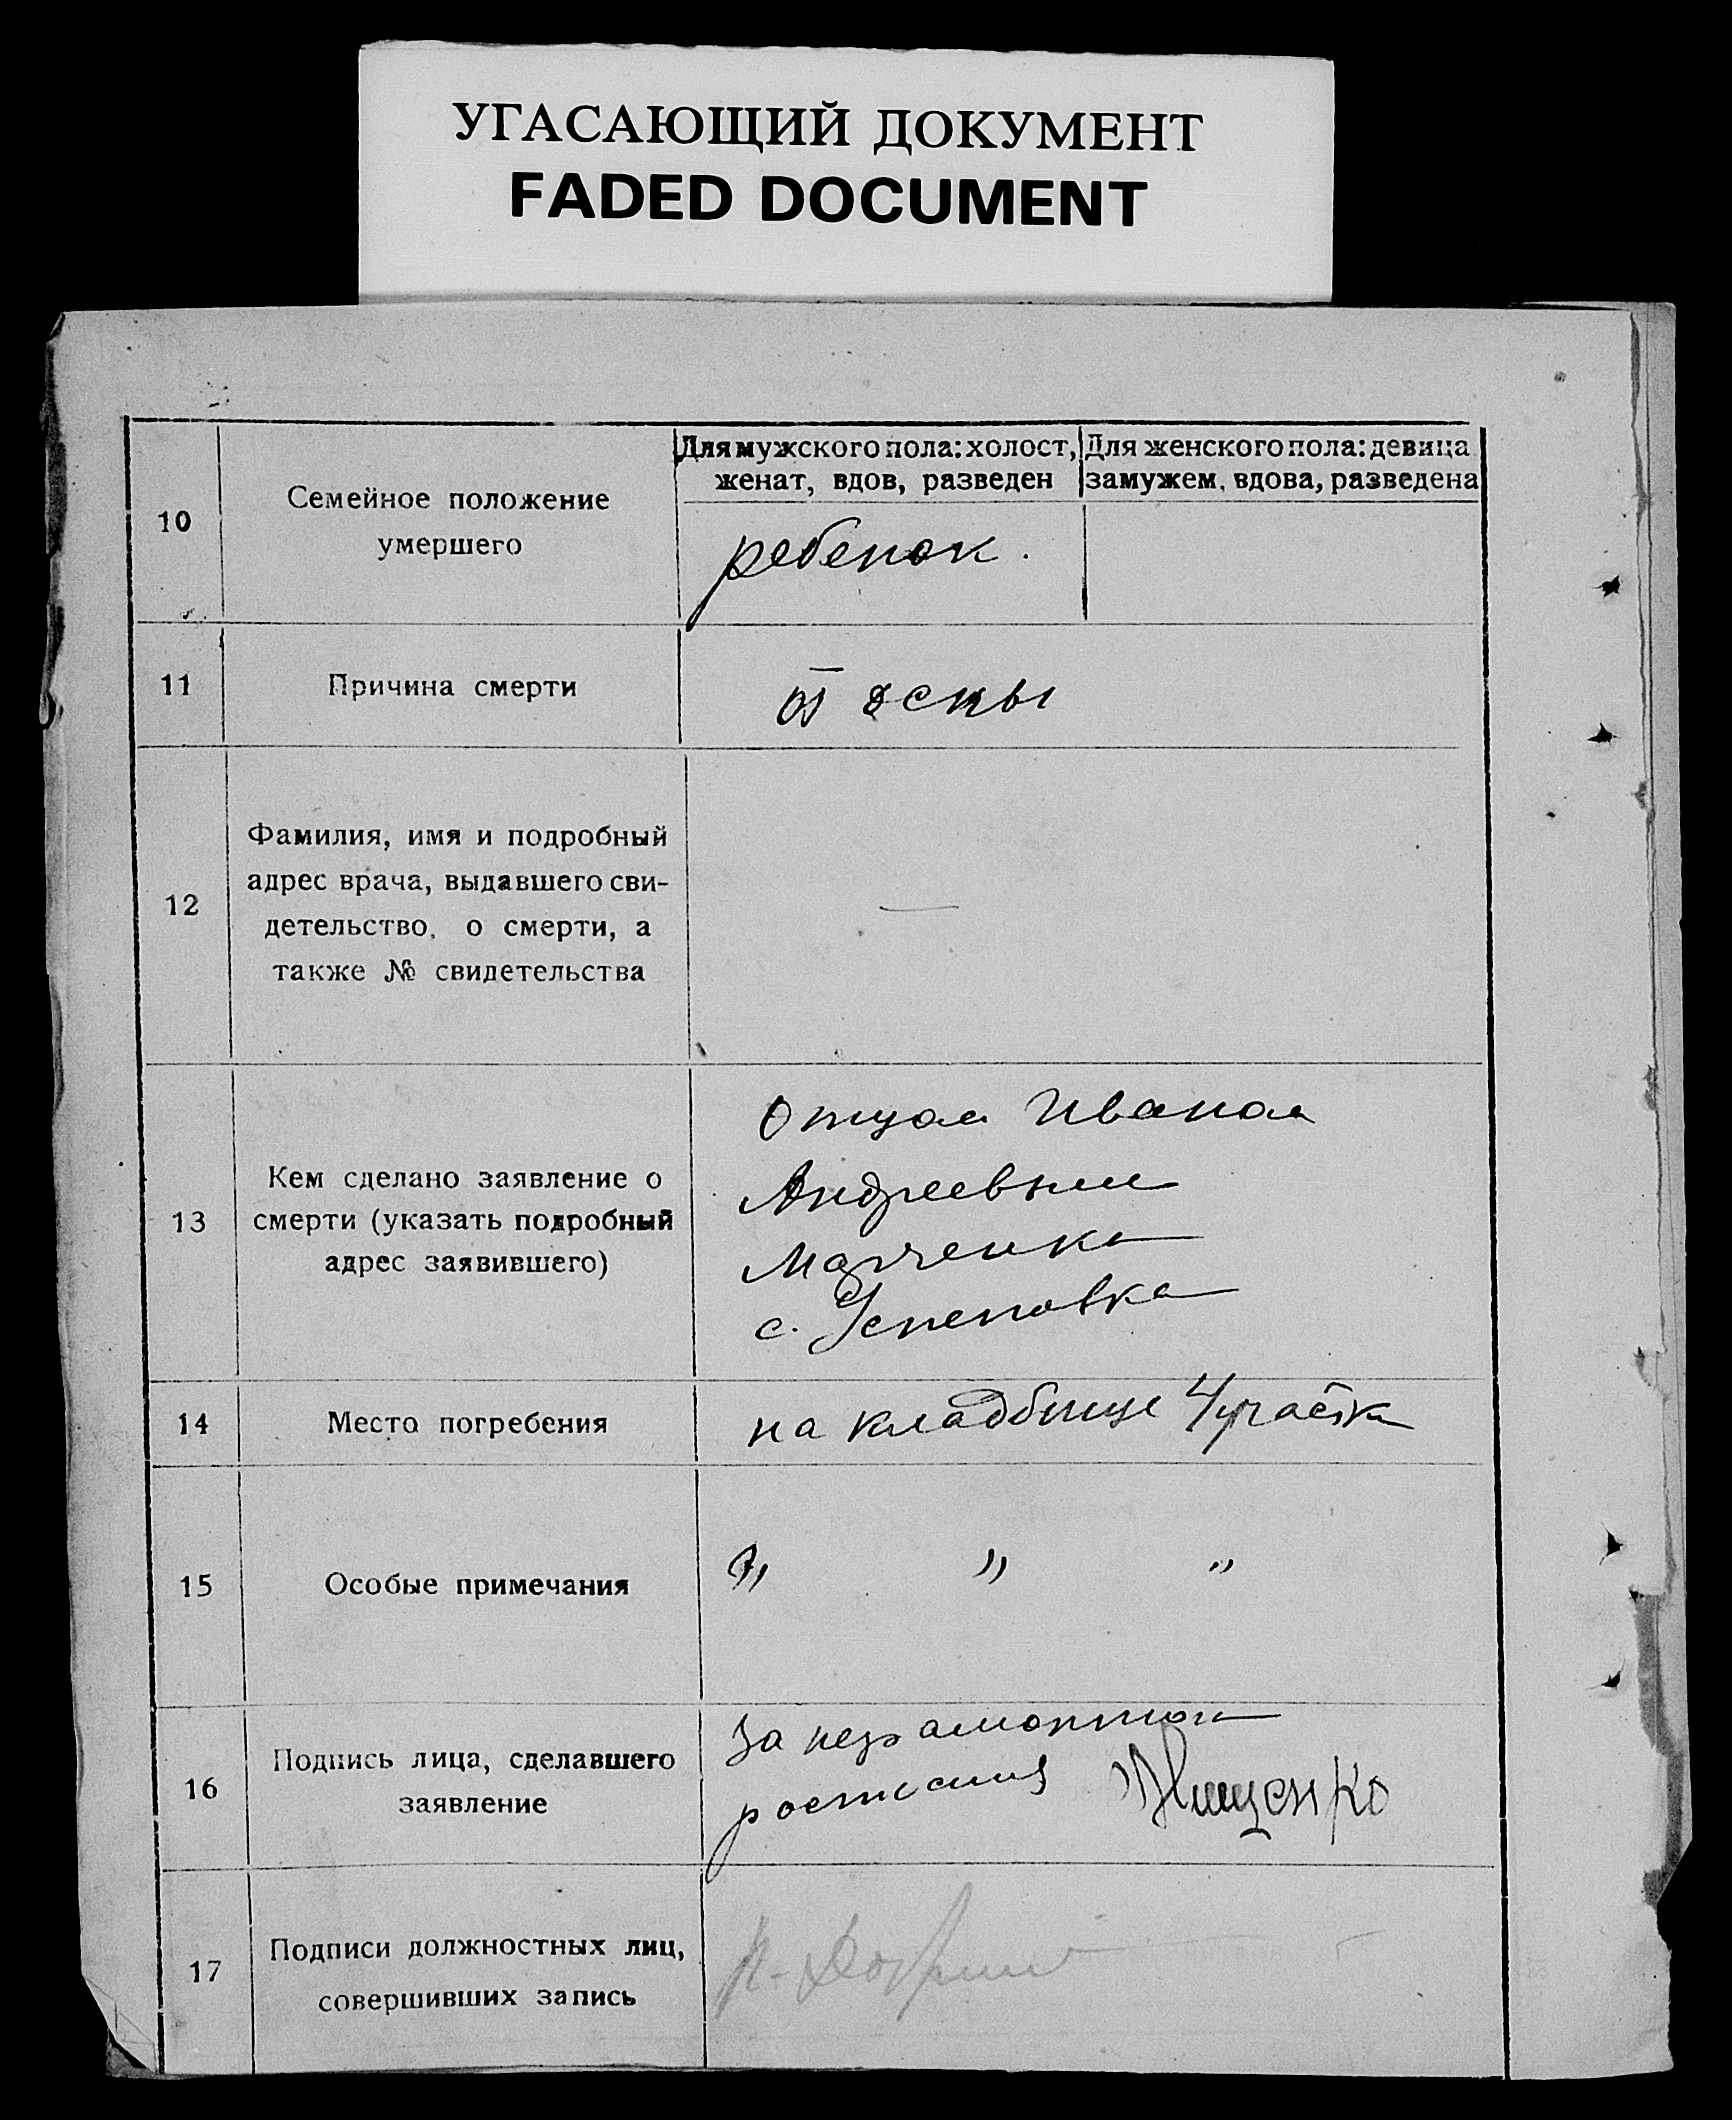 УГАСАЮЩИЙ ДОКУМЕНТ
FADED DOCUMENT
10
Семейное положение
умершего
Для мужского пола: холост,
женат, вдов, разведен
Для женского пола: девица
замужем, вдова, разведена
ребенок.
11
Причина смерти
от оспы
12
Фамилия, имя и подробный
адрес врача, выдавшего сви-
детельство, о смерти, а
также № свидетельства
—
13
Кем сделано заявление о
смерти (указать подробный
адрес заявившего)
Отцом Иваном
Андреевым
с. Успеновка
14
Место погребения
на кладбище 4 участка
15
Особые примечания
" " "
16
Подпись лица, сделавшего
заявление
За неграмотного
17
Подписи должностных лиц,
совершивших запись